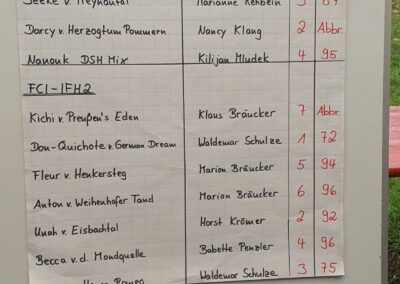 Seeke v. Heynautal Marianne Rehbein 3 87
Darcy v. Herzogtum Pommern Nancy Klang 2 Abbr.
Nanouk DSH Mix Kilijan Mludek 4 95
FCI-IFH2
Kichi v. Preußen's Eden Klaus Bräucker 7 Abbr.
Don-Quichote v. German Dream Waldemar Schulze 1 72
Fleur v. Henkersteg Marion Bräucker 5 94
Anton v. Weihenhofer Tand Marion Bräucker 6 96
Unah v. Eisbachtal Horst Krömer 2 92
Becca v. d. Mondquelle Babette Penzler 4 96
Waldemar Schulze 3 75